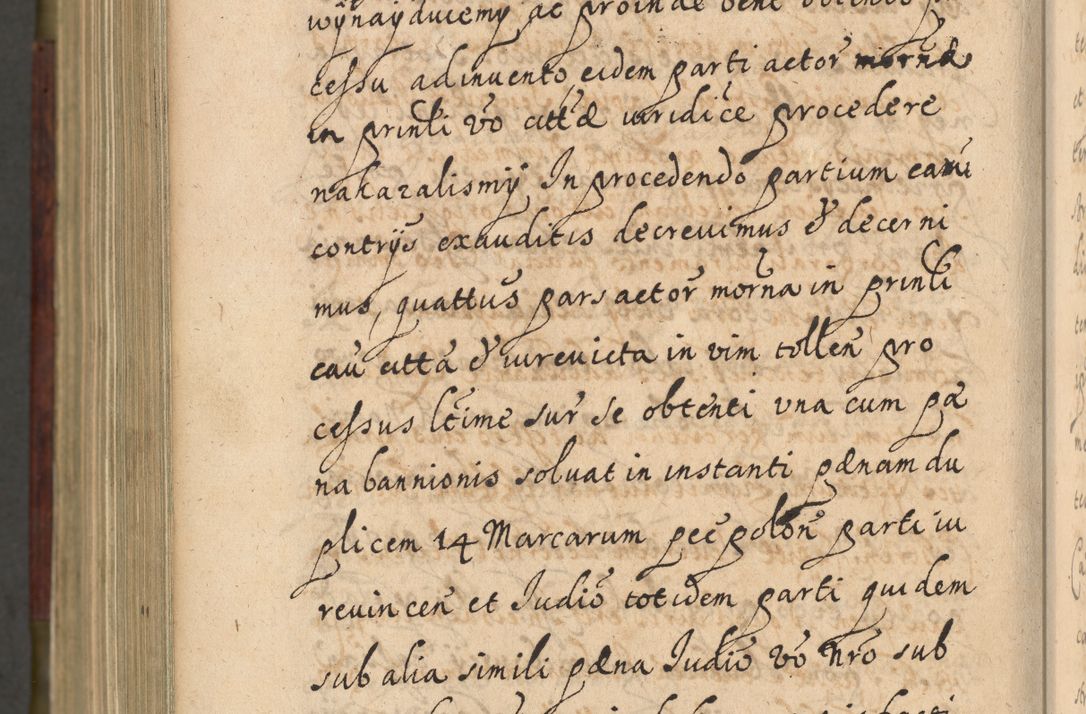 wÿnaÿducemy ac proinde bene obtento p
cessu adinvento, eidem parti actor̃ morñæ
in prinłi vo attæ iuridice procedere
nakazalismÿ In procedendo partium eam̃
contrÿs exauditis decrevimus & decerni
mus, quattus pars actor̃ morña in prinłi
cau atta & iurevicta in vim tolleñ pro
cessus łtime sur se obtenti una cum pæ
na bannionis solvat in instanti pænam du
plicem 14 Marcarum pec poloñ parti iu
revinceñ et Judiō totidem parti quidem
sub alia simili pæna Judiō vō nrō sub